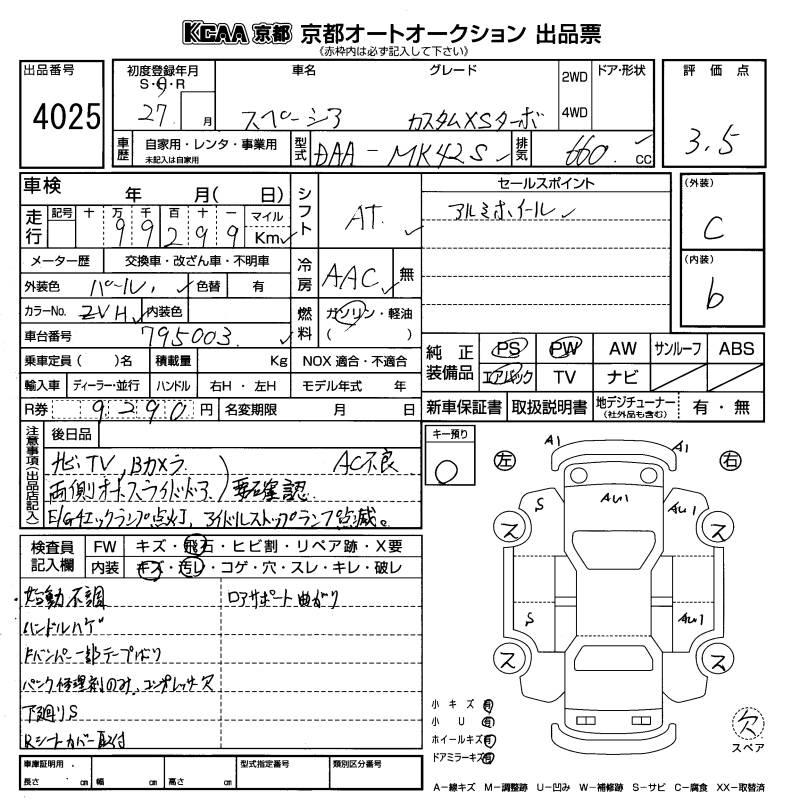 KCAA 京都 京都オートオークション 出品票
(赤枠内は必ず記入して下さい)
出品番号
4025
初度登録年月
S・H・R
27 月
車名
スペーシア
グレード
カスタムXSターボ
2WD
4WD
ドア・形状
評価点
3.5
車歴
自家用・レンタ・事業用
未記入は自家用
型式
DAA-MK42S
排気
660 cc
車検 年 月( 日)
走行
記号 十 万 千 百 十 一 マイル
9 9 2 9 9 Km
シフト
AT
セールスポイント
アルミホイール
(外装)
C
(内装)
b
メーター歴 交換車・改ざん車・不明車
外装色 パール 色替 有
カラーNo. ZVH 内装色
冷房
AAC 無
燃料
ガソリン・軽油
( )
車台番号 795003
乗車定員( )名 積載量 Kg NOX 適合・不適合
輸入車 ディーラー・並行 ハンドル 右H・左H モデル年式 年
R券 9290円 名変期限 月 日
純正装備品
PS PW AW サンルーフ ABS
エアバック TV ナビ
新車保証書 取扱説明書 地デジチューナー(社外品も含む) 有・無
注意事項(出品店記入)
後日品
ナビ、TV、Bカメラ AC不良
両側オートスライドドア 要確認
E/Gチェックランプ点灯、アイドルストップランプ点滅。
キー預り
検査員記入欄
FW キズ・飛石・ヒビ割・リペア跡・X要
内装 キズ・汚レ・コゲ・穴・スレ・キレ・破レ
始動不調 ロアサポート曲がり
ハンドルハゲ
Fバンパー一部テープはり
パンク修理剤のみ、コンプレッサー欠
下廻りS
Rシートカバー取付
左 右
A1 A1
S AU1 AU1
S AU1
ス ス
ス ス
小キズ 有
小U 有
ホイールキズ 有
ドアミラーキズ 有
欠
スペア
車庫証明用
長さ cm 幅 cm 高さ cm
型式指定番号 類別区分番号
A−線キズ M−調整跡 U−凹み W−補修跡 S−サビ C−腐食 XX−取替済